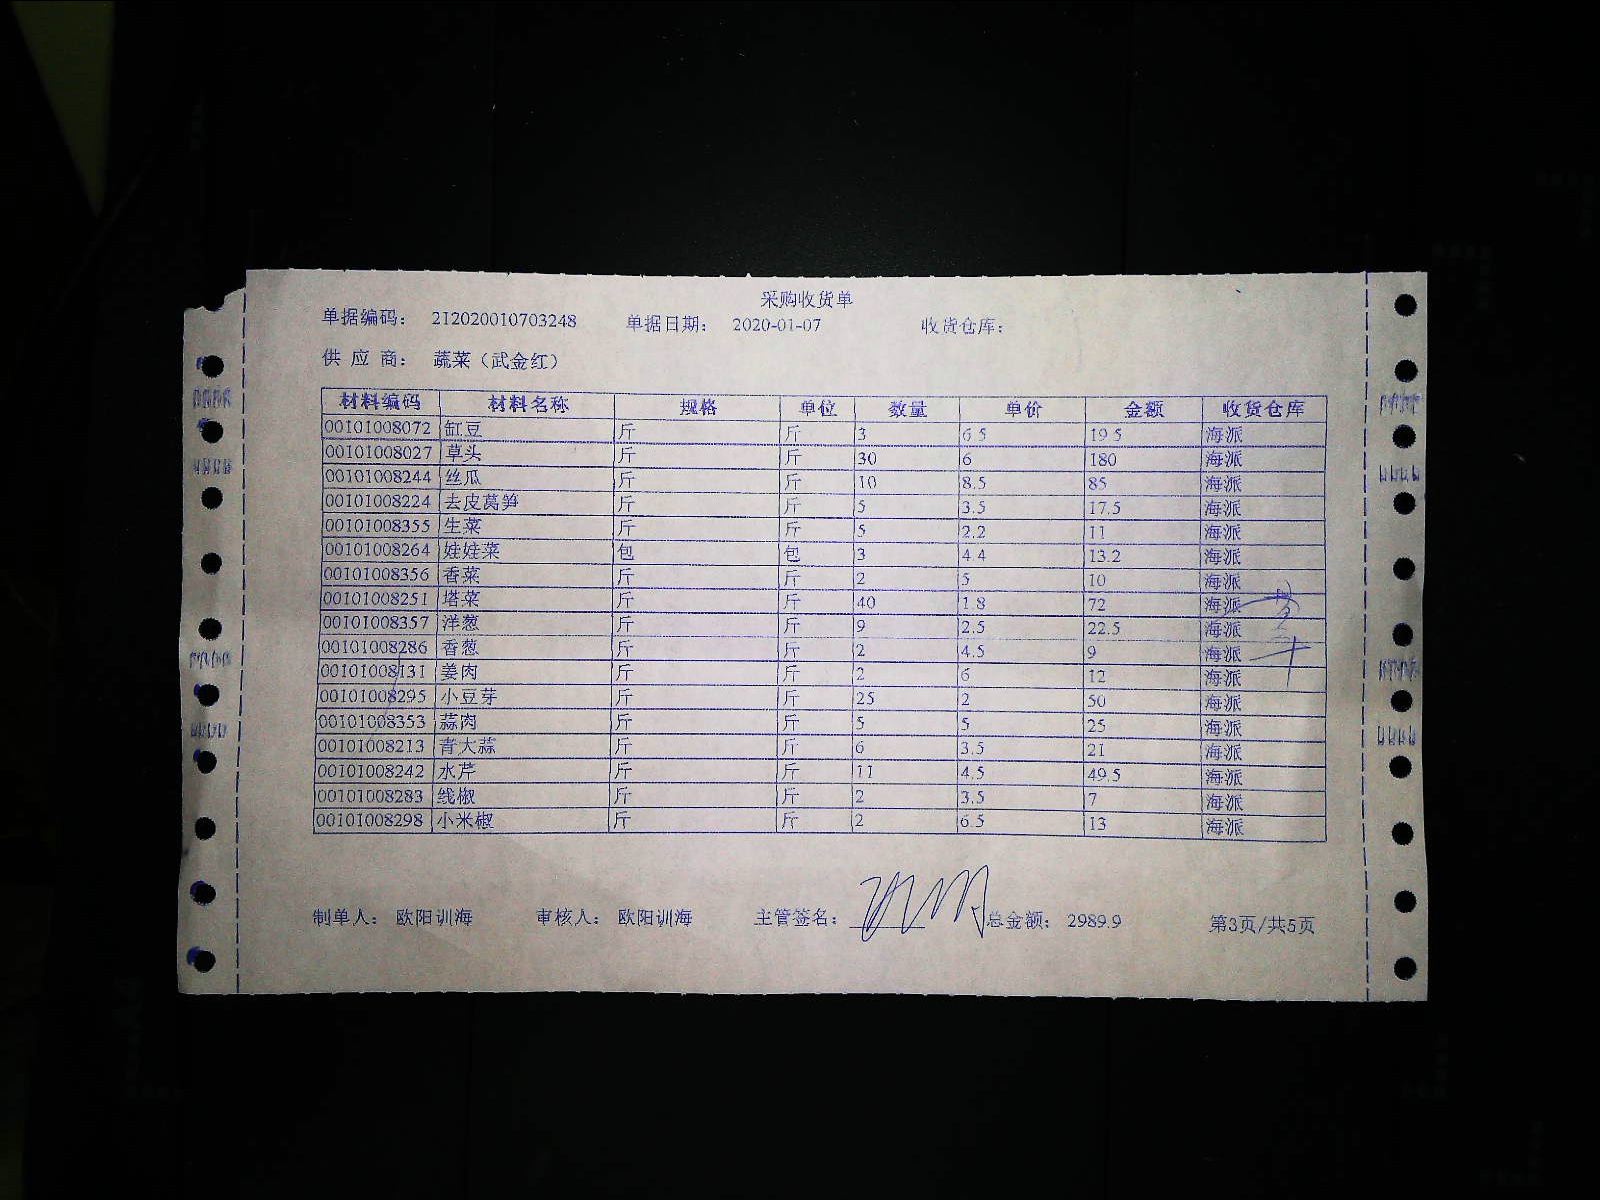 采购收货单
单据编码： 212020010703248 单据日期： 2020-01-07 收货仓库：
供 应 商： 蔬菜（武金红）
材料编码 材料名称 规格 单位 数量 单价 金额 收货仓库
00101008072 缸豆 斤 斤 3 6.5 19.5 海派
00101008027 草头 斤 斤 30 6 180 海派
00101008244 丝瓜 斤 斤 10 8.5 85 海派
00101008224 去皮莴笋 斤 斤 5 3.5 17.5 海派
00101008355 生菜 斤 斤 5 2.2 11 海派
00101008264 娃娃菜 包 包 3 4.4 13.2 海派
00101008356 香菜 斤 斤 2 5 10 海派
00101008251 塔菜 斤 斤 40 1.8 72 海派
00101008357 洋葱 斤 斤 9 2.5 22.5 海派
00101008286 香葱 斤 斤 2 4.5 9 海派
00101008131 姜肉 斤 斤 2 6 12 海派
00101008295 小豆芽 斤 斤 25 2 50 海派
00101008353 蒜肉 斤 斤 5 5 25 海派
00101008213 青大蒜 斤 斤 6 3.5 21 海派
00101008242 水芹 斤 斤 11 4.5 49.5 海派
00101008283 线椒 斤 斤 2 3.5 7 海派
00101008298 小米椒 斤 斤 2 6.5 13 海派
制单人： 欧阳训海 审核人： 欧阳训海 主管签名： 总金额： 2989.9 第3页/共5页